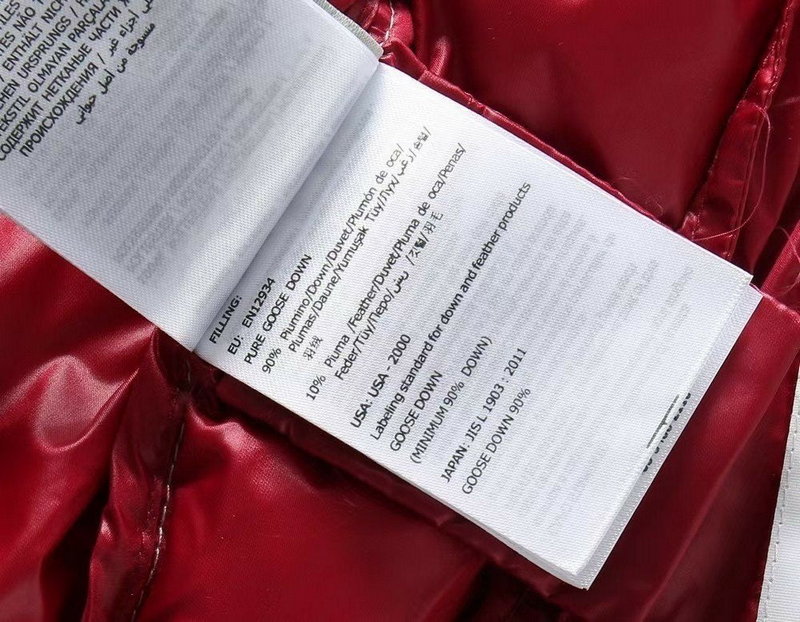 ILES
TES NÃO
/ ENTHÄLT NICH
CHEN URSPRUNGS /
TEKSTIL OLMAYAN PARÇALA
СОДЕРЖИТ НЕТКАНЫЕ ЧАСТИ
ПРОИСХОЖДЕНИЯ /
منسوجة من أصل حيواني
FILLING:
EU: EN12934
PURE GOOSE DOWN
90% Piumino/Down/Duvet/Plumón de oca/
Plumas/Daune/Yumuşak Tüy/Пух/زغب/솜털/
羽绒
10% Piuma /Feather/Duvet/Pluma de oca/Penas/
Feder/Tüy/Перо/ريش/깃털/羽毛
USA: USA - 2000
Labeling standard for down and feather products
GOOSE DOWN
(MINIMUM 90% DOWN)
JAPAN: JIS L 1903 : 2011
GOOSE DOWN 90%